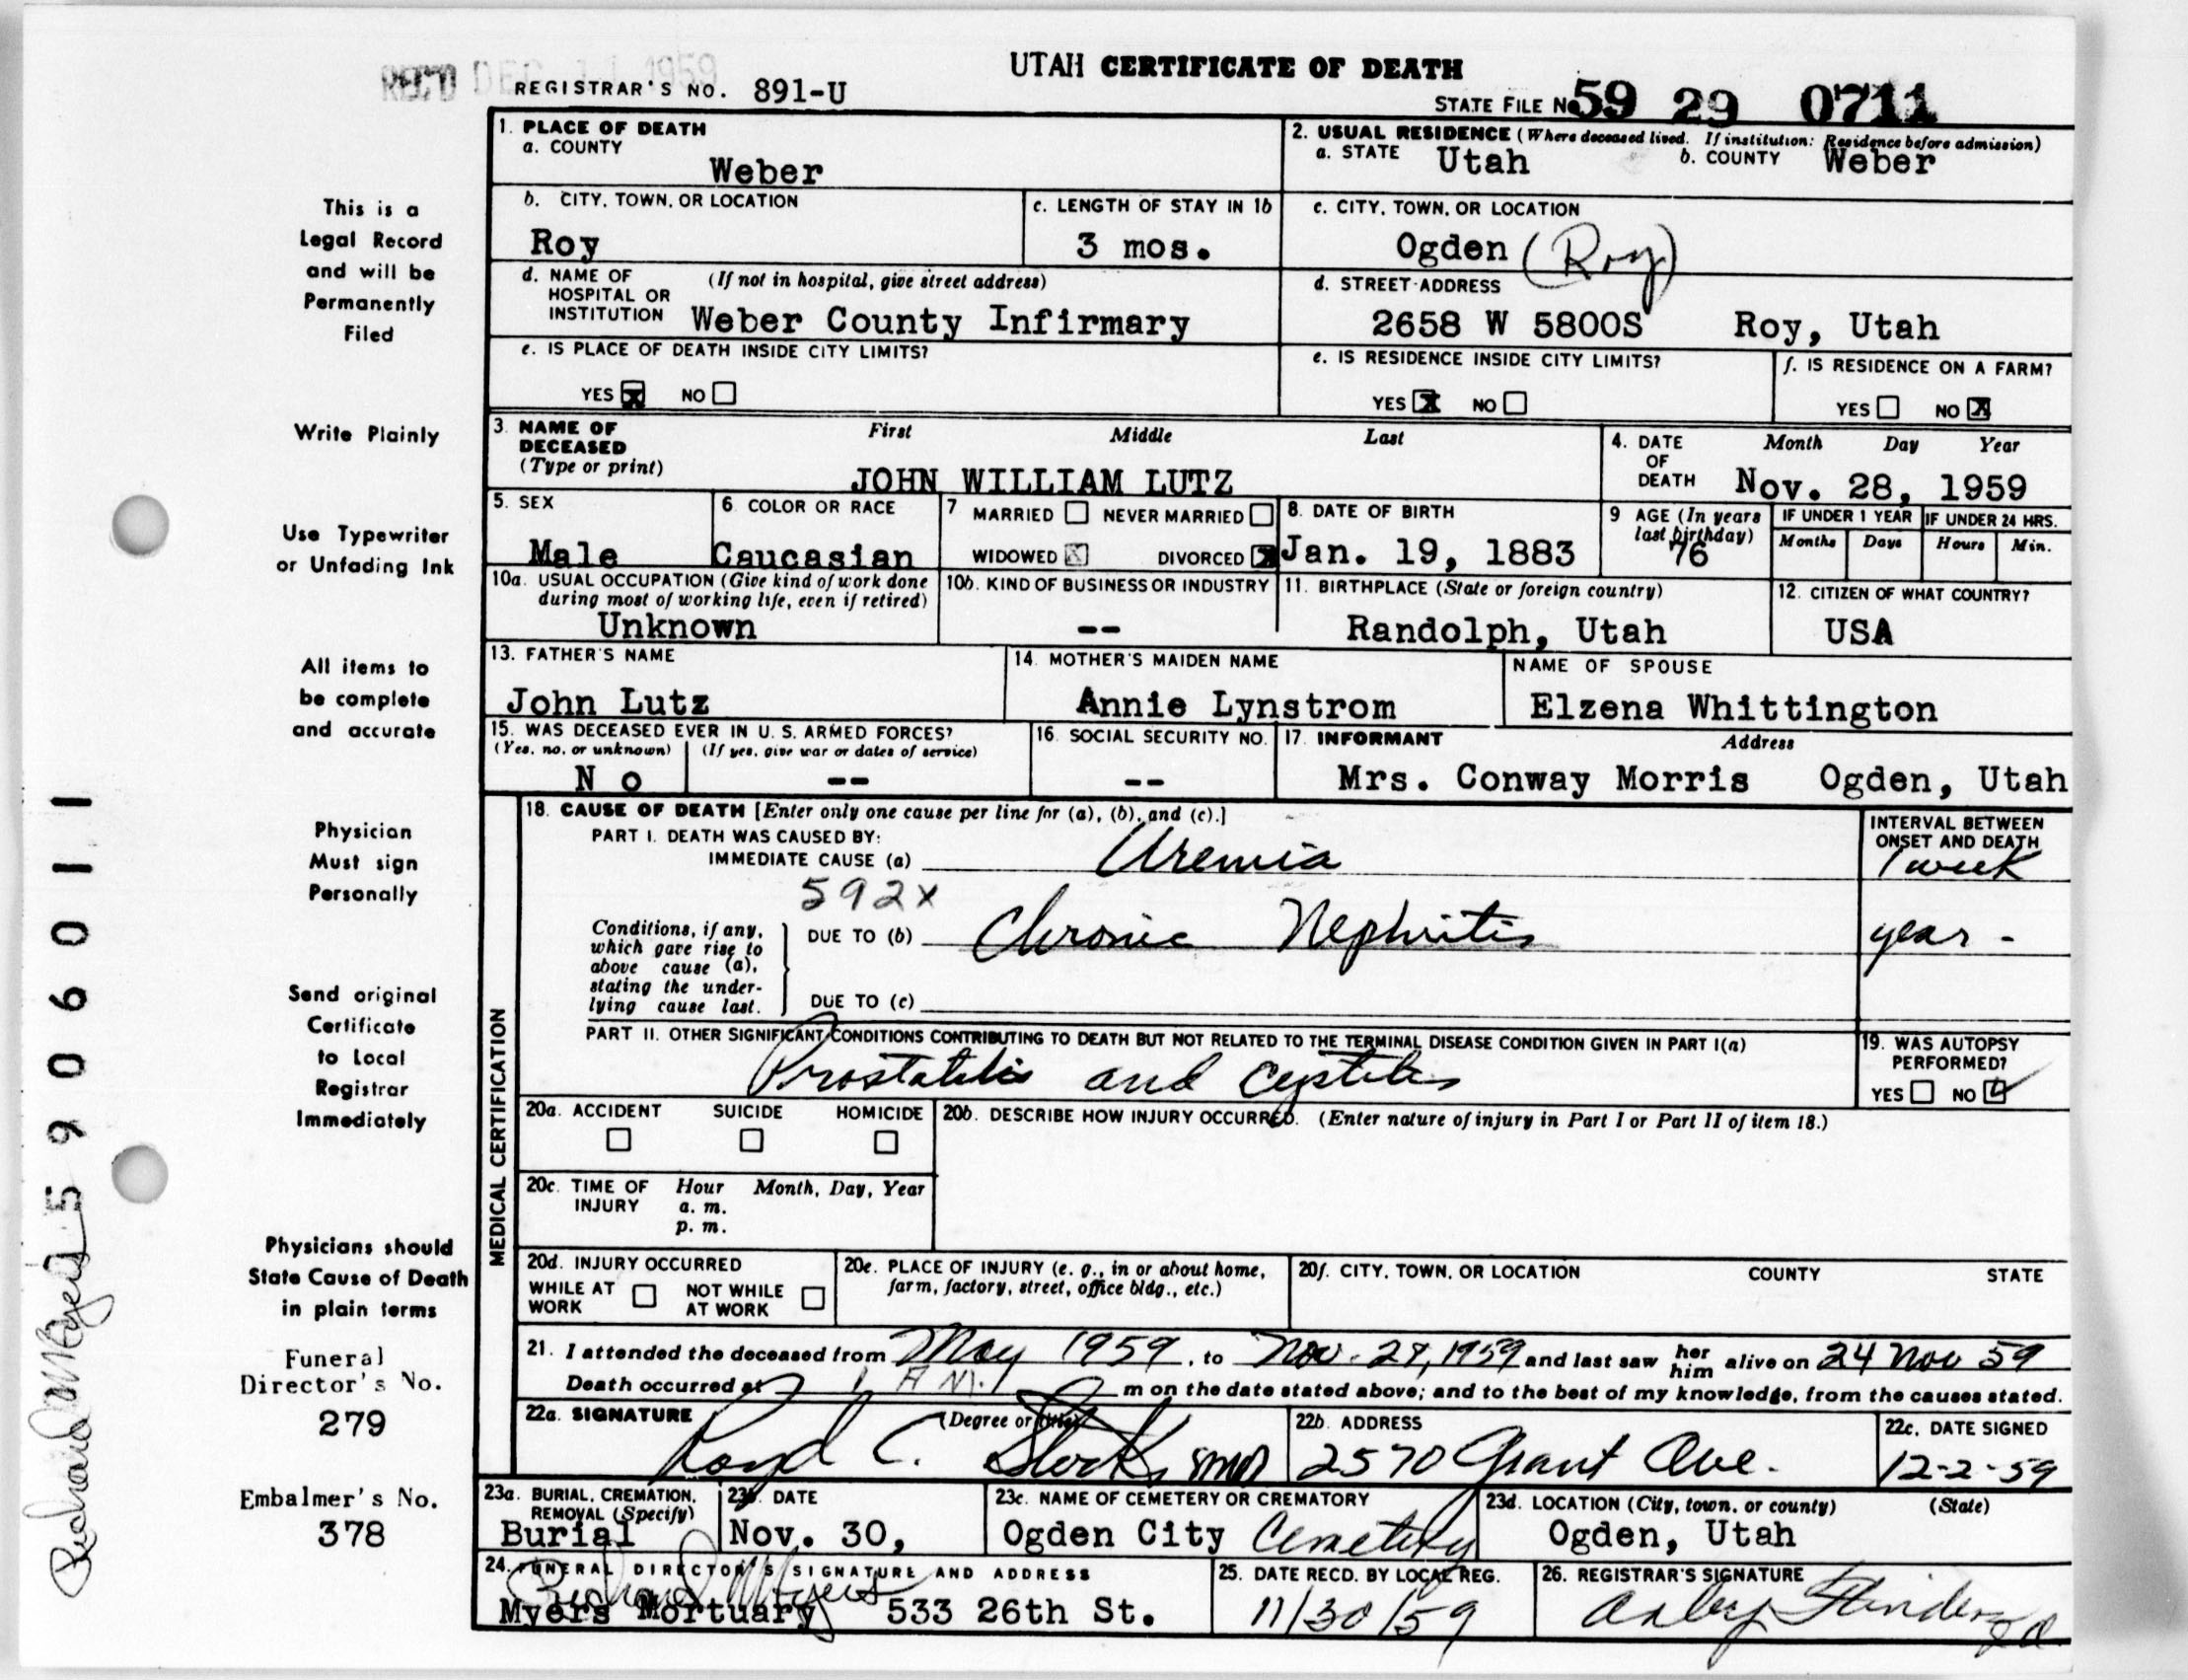 UTAH CERTIFICATE OF DEATH
REC'D DEC 11 1959
REGISTRAR'S NO. 891-U
STATE FILE No 59 29 0711
1. PLACE OF DEATH
a. COUNTY
Weber
2. USUAL RESIDENCE (Where deceased lived. If institution: Residence before admission)
a. STATE Utah b. COUNTY Weber
b. CITY, TOWN, OR LOCATION
Roy
c. LENGTH OF STAY IN 1b
3 mos.
c. CITY, TOWN, OR LOCATION
Ogden (Roy)
d. NAME OF HOSPITAL OR INSTITUTION (If not in hospital, give street address)
Weber County Infirmary
d. STREET ADDRESS
2658 W 5800S Roy, Utah
e. IS PLACE OF DEATH INSIDE CITY LIMITS?
YES X NO
e. IS RESIDENCE INSIDE CITY LIMITS?
YES X NO
f. IS RESIDENCE ON A FARM?
YES NO X
3. NAME OF DECEASED (Type or print) First Middle Last
JOHN WILLIAM LUTZ
4. DATE OF DEATH Month Day Year
Nov. 28, 1959
5. SEX
Male
6. COLOR OR RACE
Caucasian
7 MARRIED NEVER MARRIED
WIDOWED X DIVORCED X
8. DATE OF BIRTH
Jan. 19, 1883
9 AGE (In years last birthday)
76
IF UNDER 1 YEAR
Months Days
IF UNDER 24 HRS.
Hours Min.
10a. USUAL OCCUPATION (Give kind of work done during most of working life, even if retired)
Unknown
10b. KIND OF BUSINESS OR INDUSTRY
--
11. BIRTHPLACE (State or foreign country)
Randolph, Utah
12. CITIZEN OF WHAT COUNTRY?
USA
13. FATHER'S NAME
John Lutz
14. MOTHER'S MAIDEN NAME
Annie Lynstrom
NAME OF SPOUSE
Elzena Whittington
15. WAS DECEASED EVER IN U. S. ARMED FORCES?
(Yes, no, or unknown) (If yes, give war or dates of service)
N o --
16. SOCIAL SECURITY NO.
--
17. INFORMANT Address
Mrs. Conway Morris Ogden, Utah
MEDICAL CERTIFICATION
18. CAUSE OF DEATH [Enter only one cause per line for (a), (b), and (c).]
PART I. DEATH WAS CAUSED BY:
IMMEDIATE CAUSE (a) Uremia
INTERVAL BETWEEN ONSET AND DEATH
1 week
592X
Conditions, if any, which gave rise to above cause (a), stating the underlying cause last.
DUE TO (b) Chronic Nephritis year -
DUE TO (c)
PART II. OTHER SIGNIFICANT CONDITIONS CONTRIBUTING TO DEATH BUT NOT RELATED TO THE TERMINAL DISEASE CONDITION GIVEN IN PART I(a)
Prostatitis and cystitis
19. WAS AUTOPSY PERFORMED?
YES NO
20a. ACCIDENT SUICIDE HOMICIDE
20b. DESCRIBE HOW INJURY OCCURRED. (Enter nature of injury in Part I or Part II of item 18.)
20c. TIME OF INJURY Hour Month, Day, Year
a. m.
p. m.
20d. INJURY OCCURRED
WHILE AT WORK NOT WHILE AT WORK
20e. PLACE OF INJURY (e. g., in or about home, farm, factory, street, office bldg., etc.)
20f. CITY, TOWN, OR LOCATION COUNTY STATE
21. I attended the deceased from May 1959, to Nov. 27, 1959 and last saw her him alive on 24 Nov 59
Death occurred at 1 A M. m on the date stated above; and to the best of my knowledge, from the causes stated.
22a. SIGNATURE (Degree or title)
C. MD
22b. ADDRESS
2570 Grant Ave.
22c. DATE SIGNED
12-2-59
23a. BURIAL, CREMATION, REMOVAL (Specify)
Burial
23b. DATE
Nov. 30,
23c. NAME OF CEMETERY OR CREMATORY
Ogden City Cemetery
23d. LOCATION (City, town, or county) (State)
Ogden, Utah
24. FUNERAL DIRECTOR'S SIGNATURE AND ADDRESS
Richard Myers
Myers Mortuary 533 26th St.
25. DATE RECD. BY LOCAL REG.
11/30/59
26. REGISTRAR'S SIGNATURE
This is a
Legal Record
and will be
Permanently
Filed
Write Plainly
Use Typewriter
or Unfading Ink
All items to
be complete
and accurate
Physician
Must sign
Personally
Send original
Certificate
to Local
Registrar
Immediately
Physicians should
State Cause of Death
in plain terms
Funeral
Director's No.
279
Embalmer's No.
378
Richard Myers 5 9 0 6 0 1 1